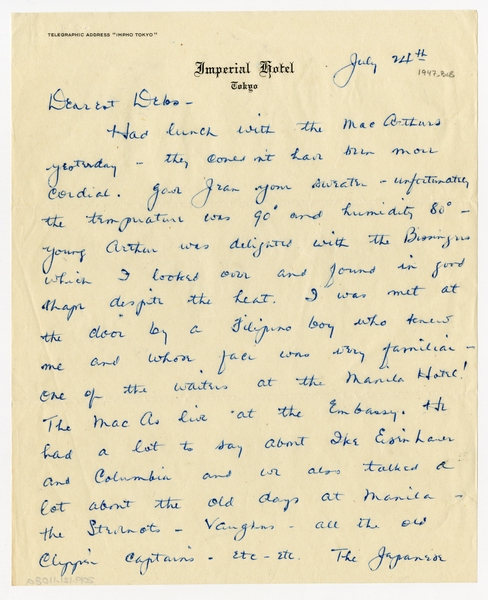 TELEGRAPHIC ADDRESS "IMPHO TOKYO"
Imperial Hotel
Tokyo
July 24th
1947
Dearest Debs -
Had lunch with the MacArthurs
yesterday - they couldn't have been more
cordial. Gave Jean your sweater - unfortunately
the temperature was 90° and humidity 80° -
young Arthur was delighted with the Bissingers
which I looked over and found in good
shape despite the heat. I was met at
the door by a Filipino boy who knew
me and whose face was very familiar -
one of the waiters at the Manila Hotel!
The MacAs live at the Embassy. He
had a lot to say about Ike Eisenhower
and Columbia and we also talked a
lot about the old days at Manila -
the - Vaughns - all the old
Clipper Captains - etc - etc. The Japanese